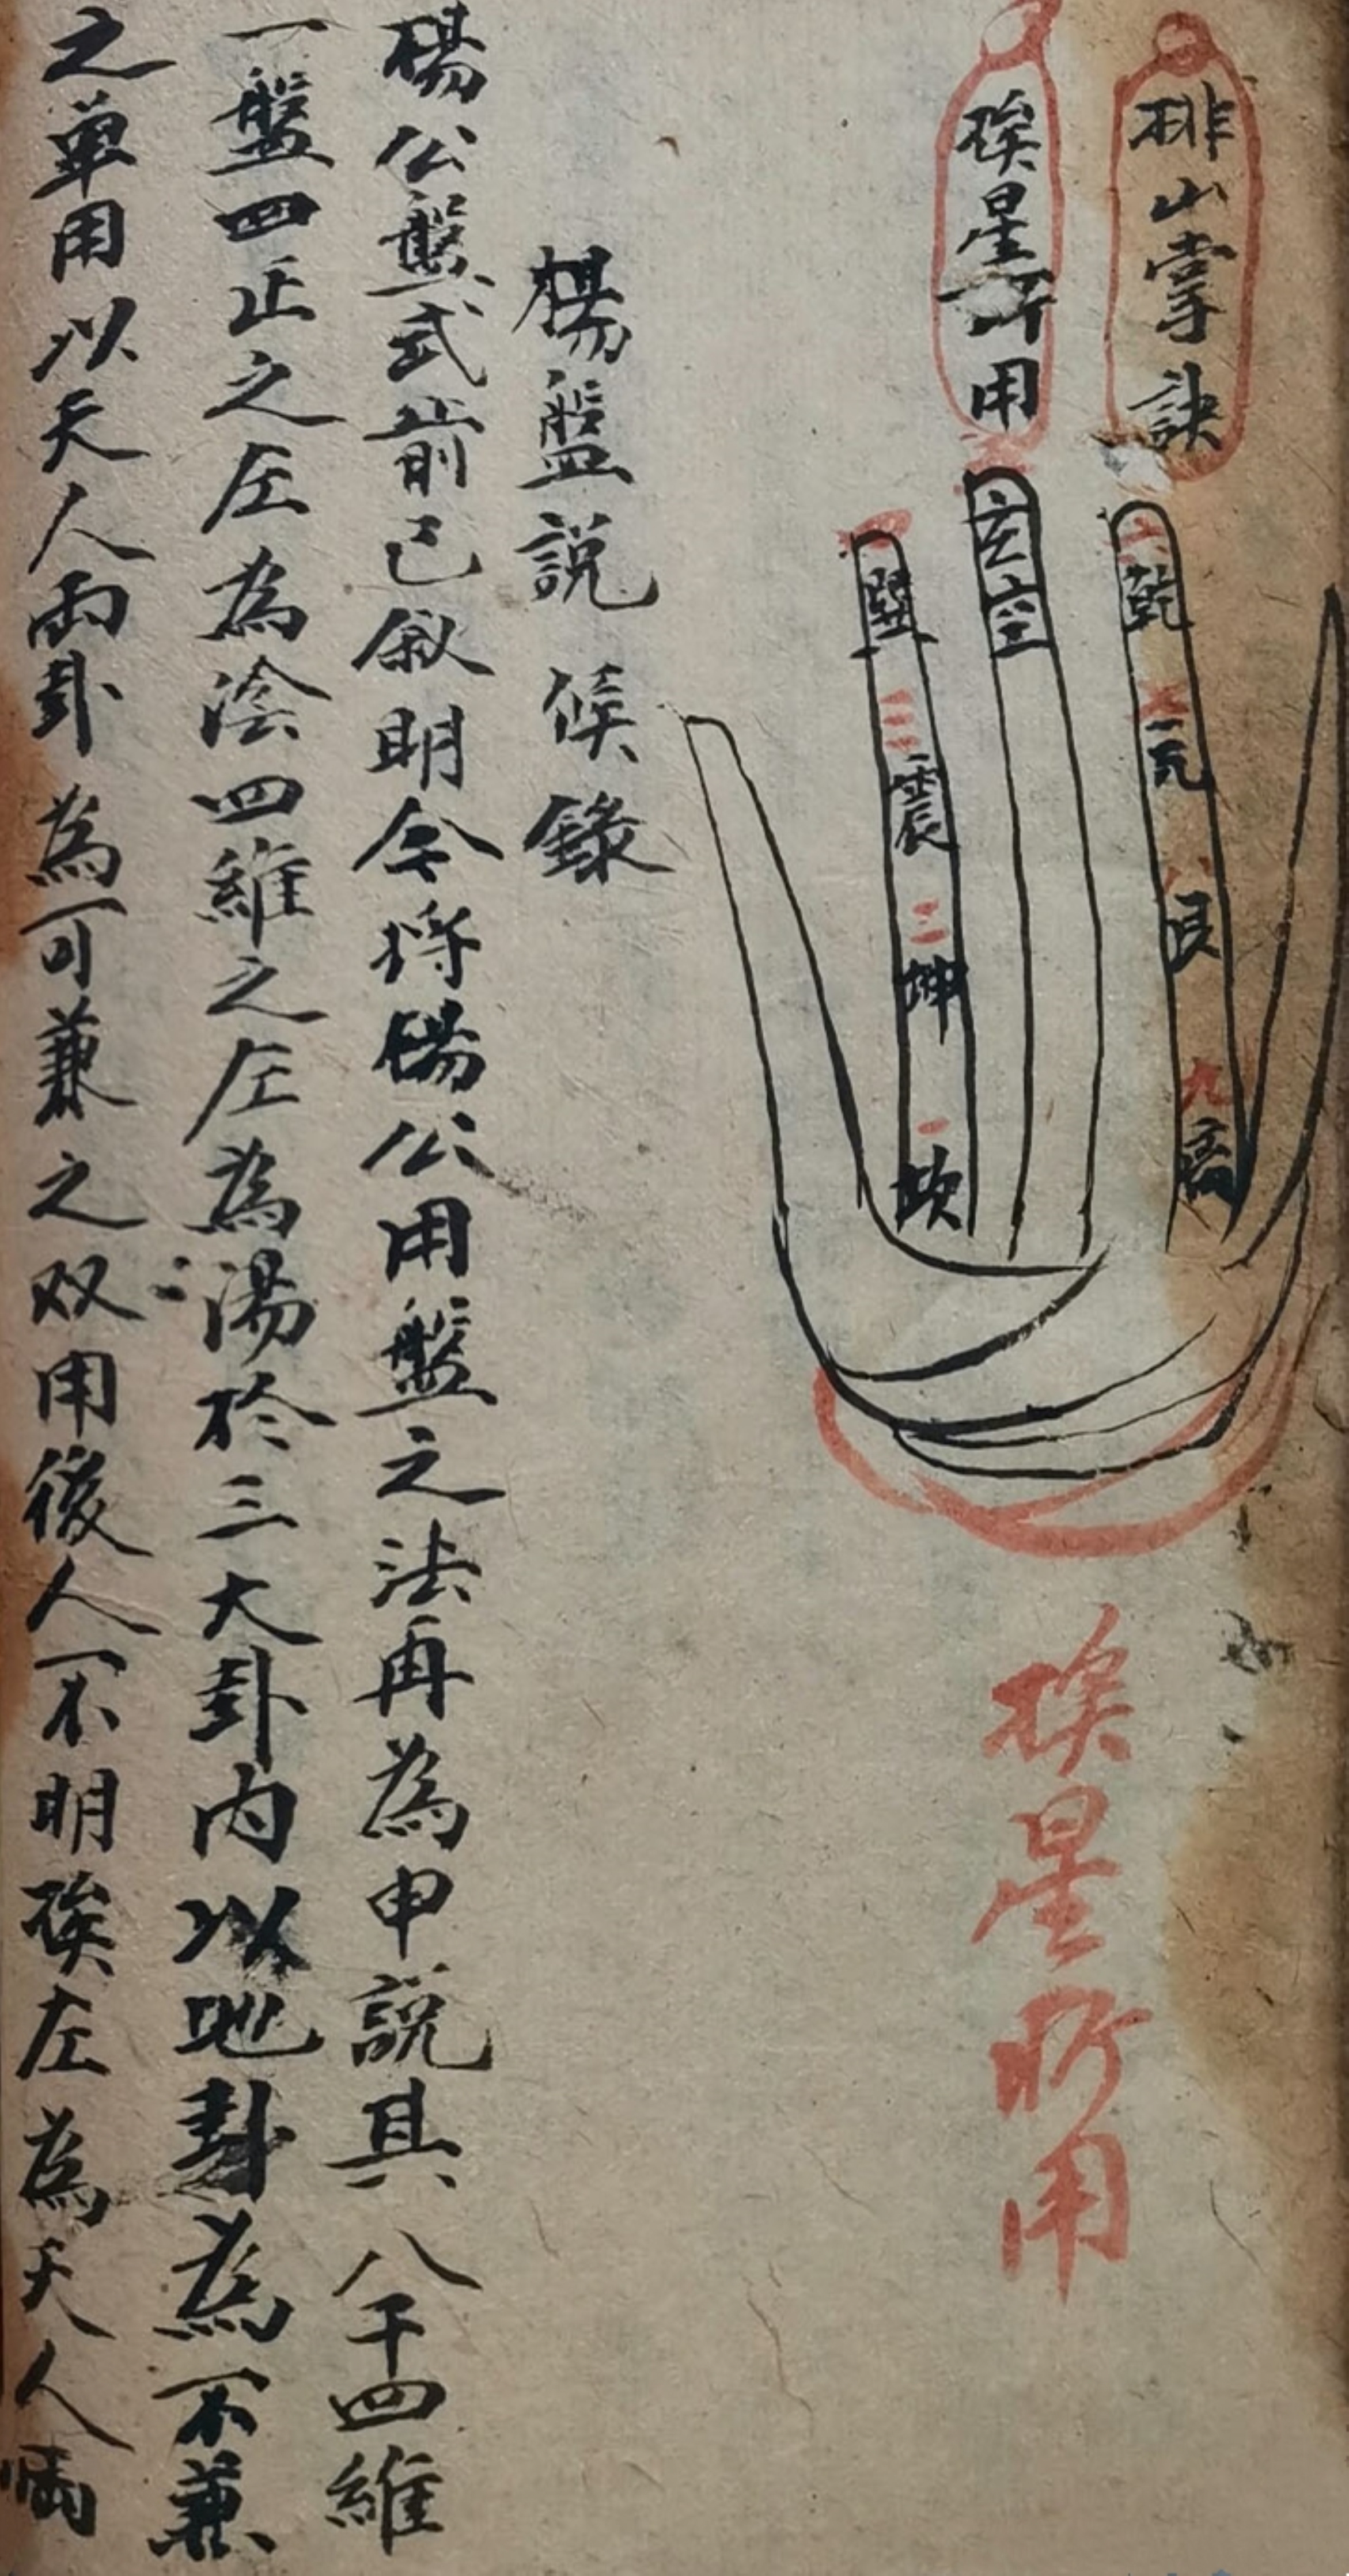 排山掌訣
挨星所用
六
乾
七
兊
八
艮
九
离
玄
空
巽
三
震
二
坤
一
坎
挨星所用
楊盤說 候錄
楊公盤式前已敘明今將楊公用盤之法再為申說其八干四維
一盤四正之左為陰四維之左為陽於三大卦內以地卦為不兼
之單用以天人兩卦為可兼之双用後人不明挨左為天人兩